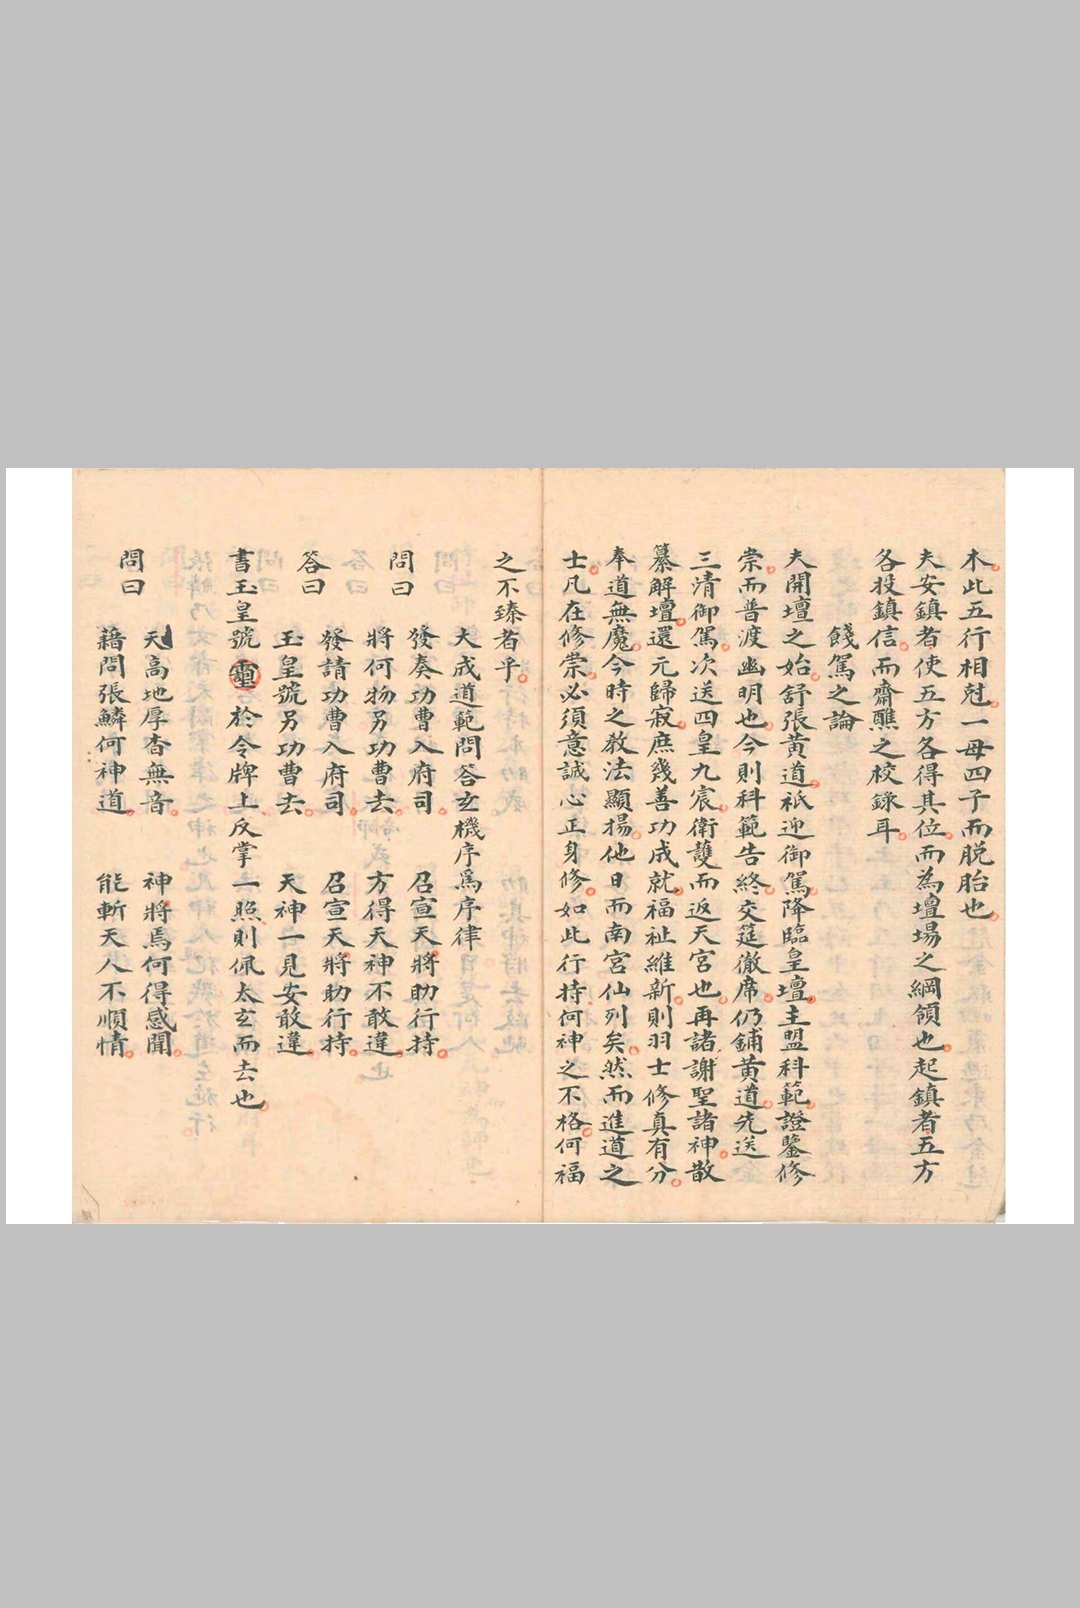 木此五行相尅一母四子而脱胎也
夫安鎮者使五方各得其位而為壇場之綱領也起鎮者五方
各投鎮信而齋醮之校錄耳
餞駕之論
夫開壇之始舒張黄道祇迎御駕降臨皇壇主盟科範證鑒修
崇而普渡幽明也今則科範告終交筵徹席仍鋪黄道先送
三清御駕次送四皇九宸衛護而返天宮也再諸謝聖諸神散
纂解壇還元歸寂庶幾善功成就福祉維新則羽士修真有分
奉道無魔今時之教法顯揚他日而南宮仙列矣然而進道之
士凡在修崇必須意誠心正身修如此行持何神之不格何福
之不臻者乎
大成道範問答玄機序為序律
發奏功曹入府司 召宣天將助行持
問曰
將何物另功曹去 方得天神不敢違
發請功曹入府司 召宣天將助行持
答曰
玉皇號另功曹去 天神一見安敢違
書玉皇號於令牌上反掌一照則佩太玄而去也
天高地厚杳無音 神將焉何得感聞
問曰
藉問張鱗何神道 能斬天人不順情